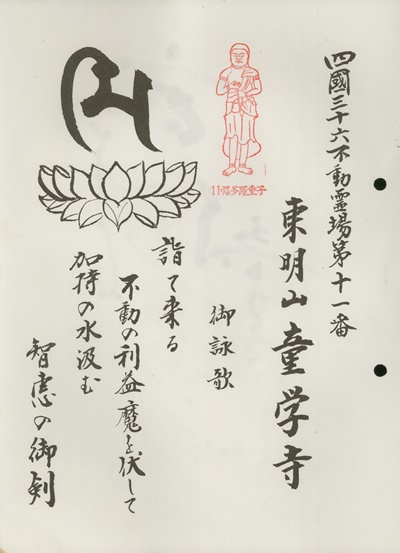 四國三十六不動霊場第十一番
東明山童学寺
御詠歌
詣て来る
不動の利益魔を伏して
加持の水汲む
智恵の御剣
11.羅多羅童子